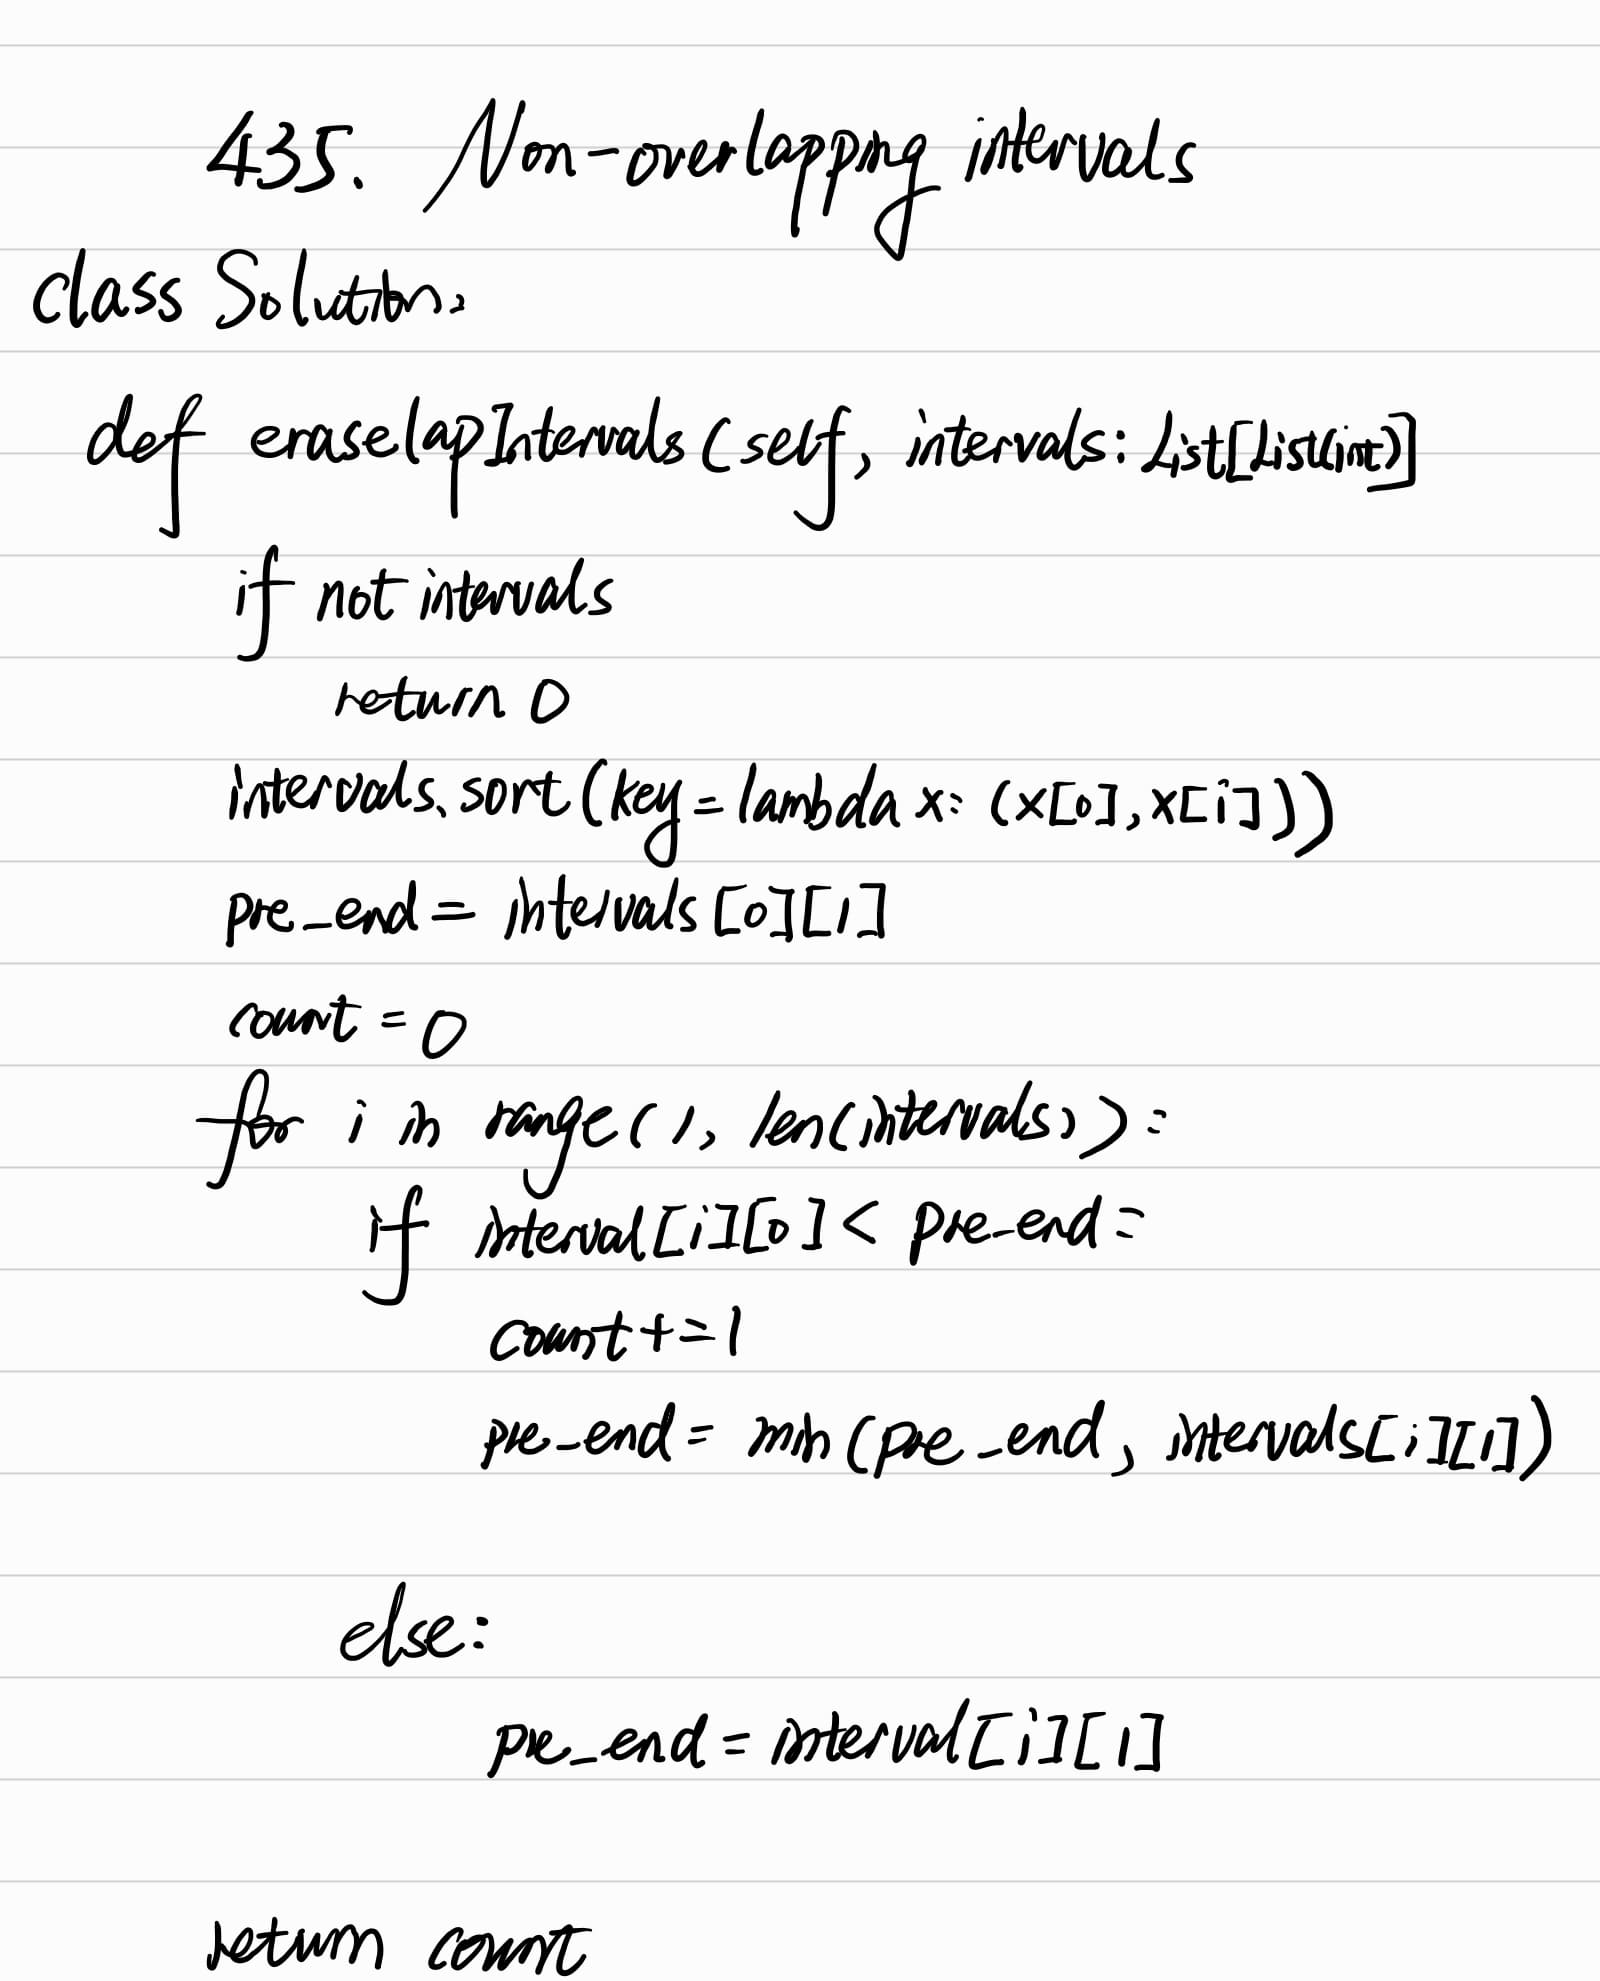 435. Non-overlapping intervals
class Solution:
def eraselapIntervals(self, intervals: List[List(int)]
if not intervals
return 0
intervals.sort(key=lambda x: (x[0],x[i]))
pre_end = intervals[0][1]
count = 0
for i in range(1, len(intervals)):
if interval[i][0] < pre_end:
count+=1
pre_end = min(pre_end, intervals[i][1])
else:
pre_end = interval[i][1]
return count